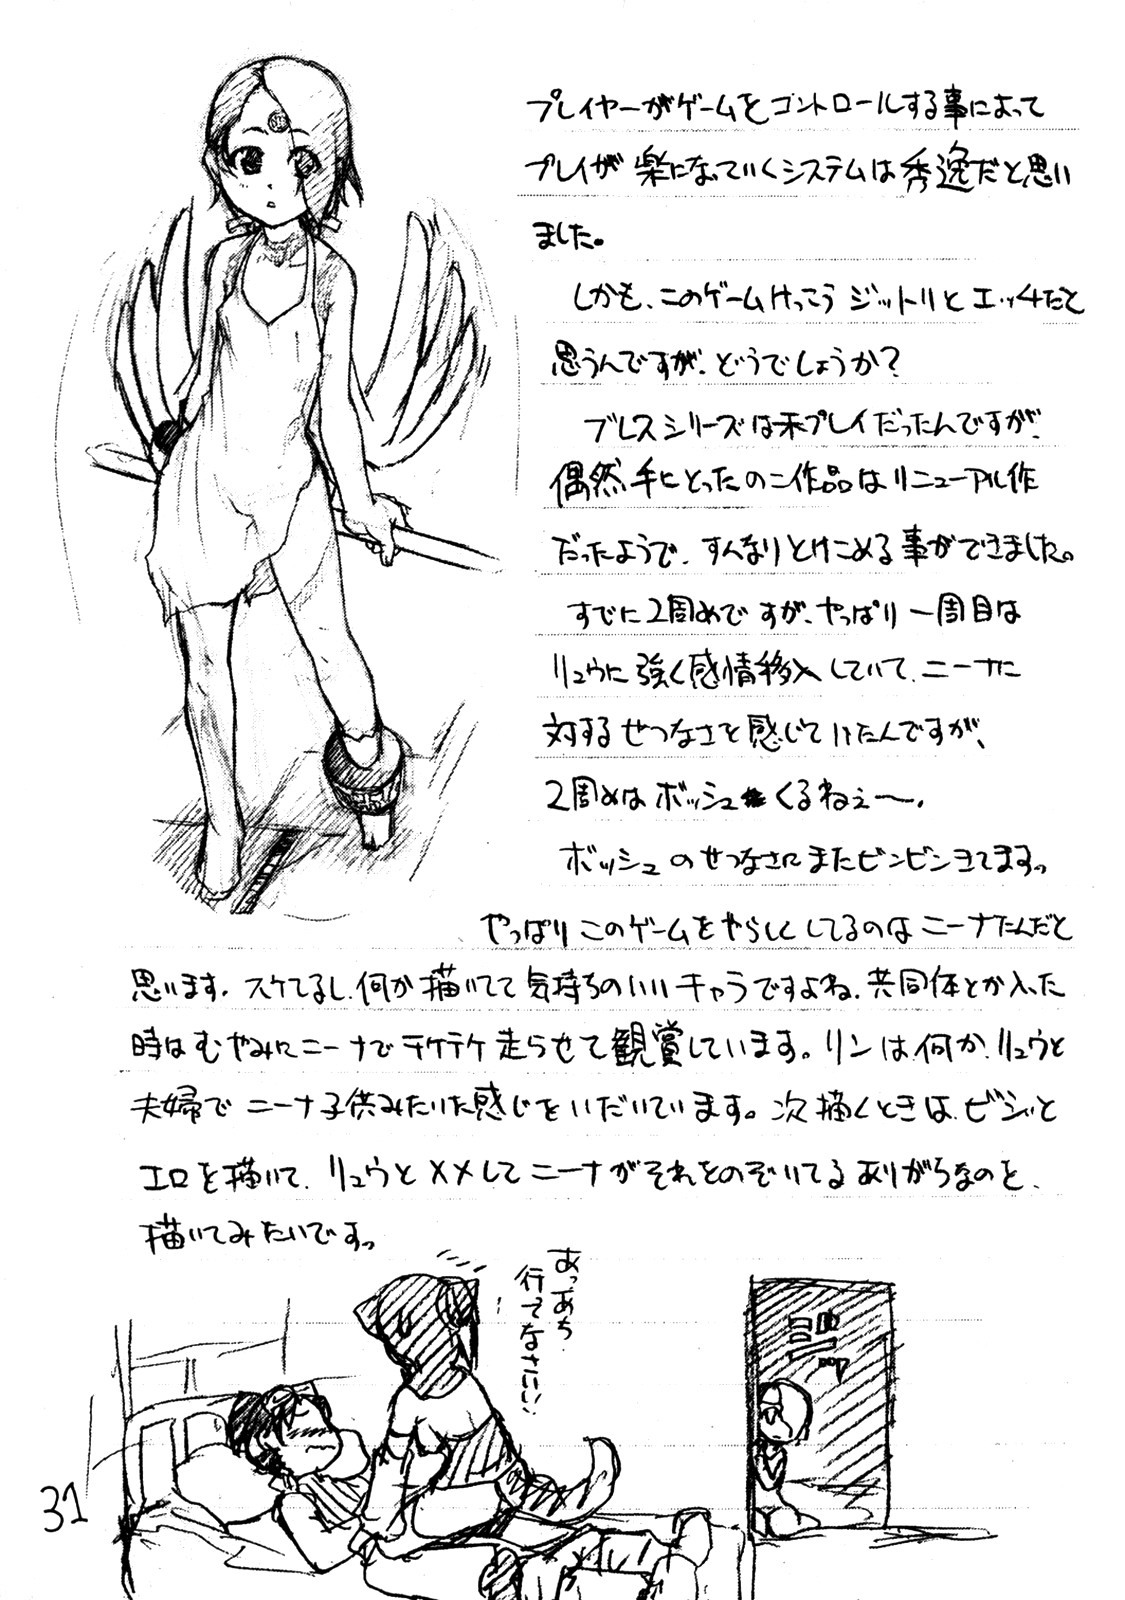 プレイヤーがゲームをコントロールする事によって
プレイが楽になっていくシステムは秀逸だと思い
ました。
しかも、このゲームけっこうジットリとエッチだと
思うんですが、どうでしょうか?
ブレスシリーズは未プレイだったんですが、
偶然手にとったのこ作品はリニューアル作
だったようで、すんなりとけこめる事ができました。
すでに2周めですが、やっぱり一周目は
リュウに強く感情移入していて、ニーナに
対するせつなさを感じていたんですが、
2周めはボッシュくるねぇ〜。
ボッシュのせつなさにまたビンビンきてますっ
やっぱりこのゲームをやらしくしてるのはニーナたんだと
思います。スケてるし、何か描いてて気持ちのいいキャラですよね。共同体とか入った
時はむやみにニーナでテケテケ走らせて観賞しています。リンは何か、リュウと
夫婦でニーナ子供みたいな感じをいだいています。次描くときは、ビシッと
エロを描いて、リュウと××してニーナがそれをのぞいてるありがちなのを、
描いてみたいですっ
あっあち
行ってなさい!!
31